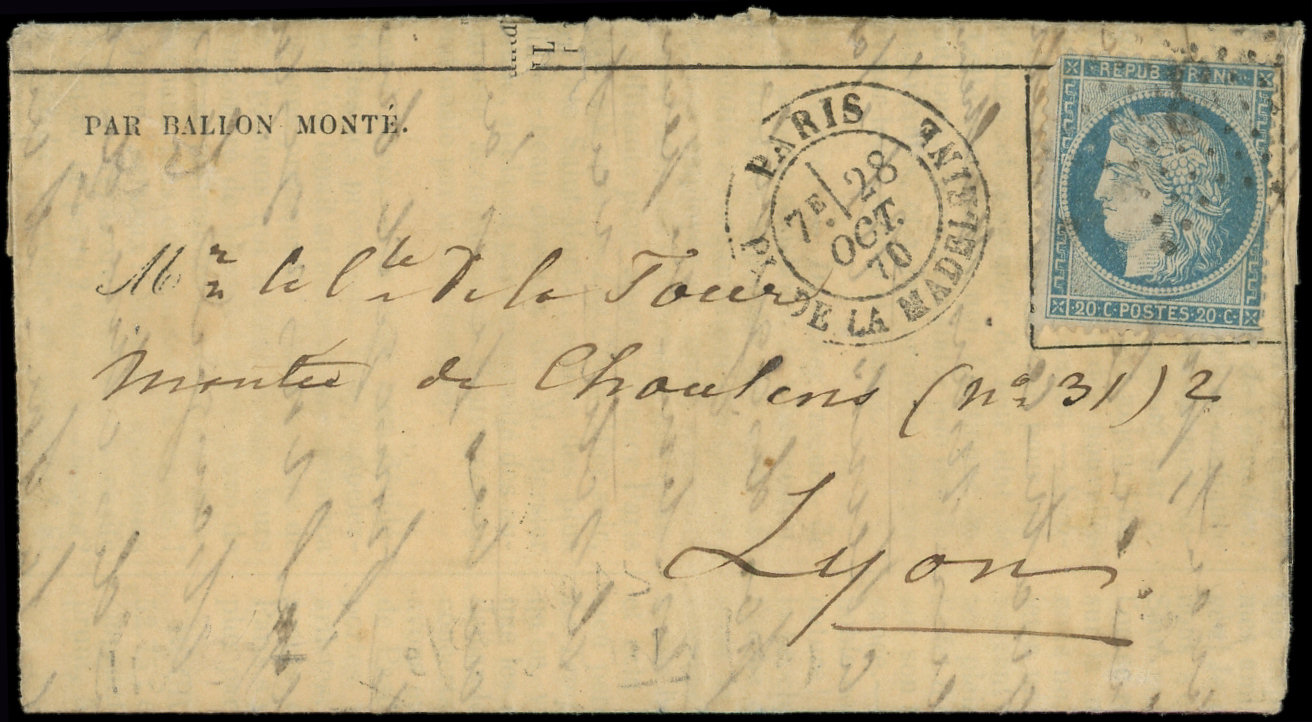 PAR BALLON MONTÉ.
PARIS
PL. DE LA MADELEINE
7E 28
OCT.
70
REPUB. FRANC.
20 C. POSTES. 20 C.
de la Tour
Montée de Choulens (no 31) 2
Lyon